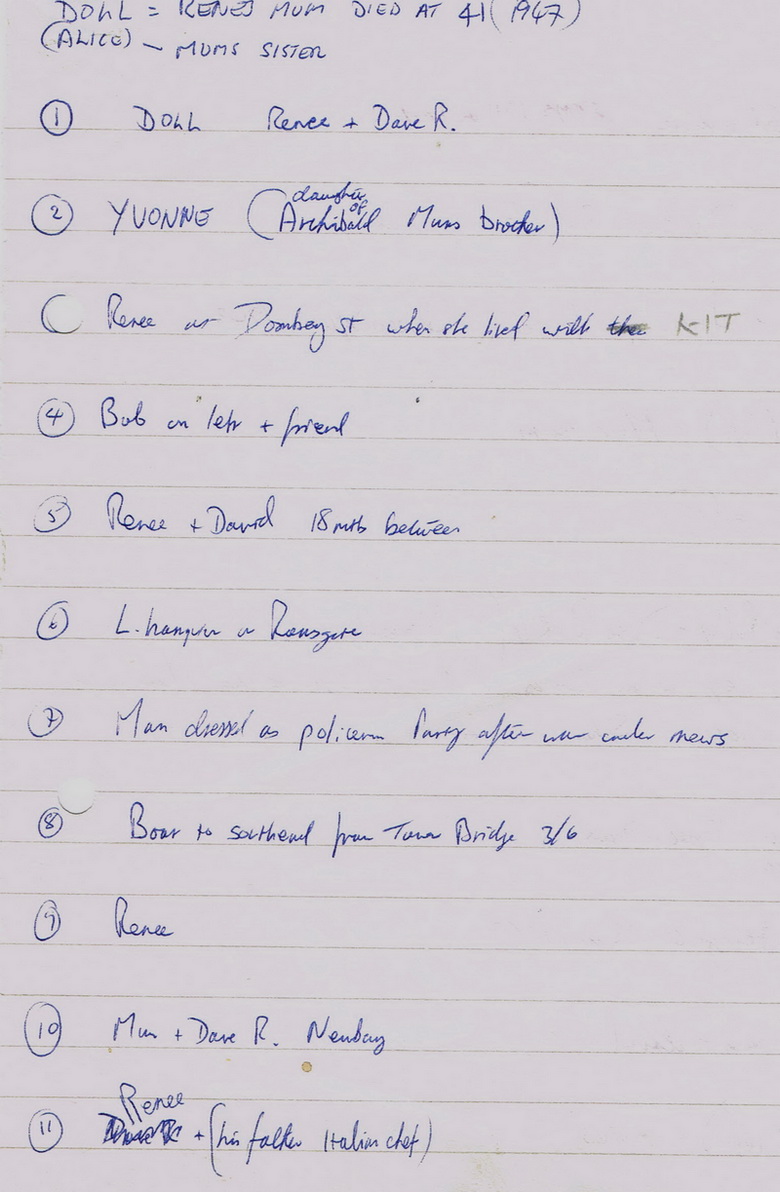 DOLL = RENE'S MUM DIED AT 41 (1947)
(ALICE) – MUMS SISTER
① DOLL Renee + Dave R.
daughter of
② YVONNE (Archibald Mums brother)
Renee at Dombey St when she lived with the KIT
④ Bob on left + friend
⑤ Renee + David 18 mth between
⑥ L. in Ramsgate
⑦ Man dressed as policeman Party after war under mews
⑧ Boat to southend from Tower Bridge 3/6
⑨ Renee
⑩ Mum + Dave R. Newbury
Renee
⑪ + (his father Italian chef)